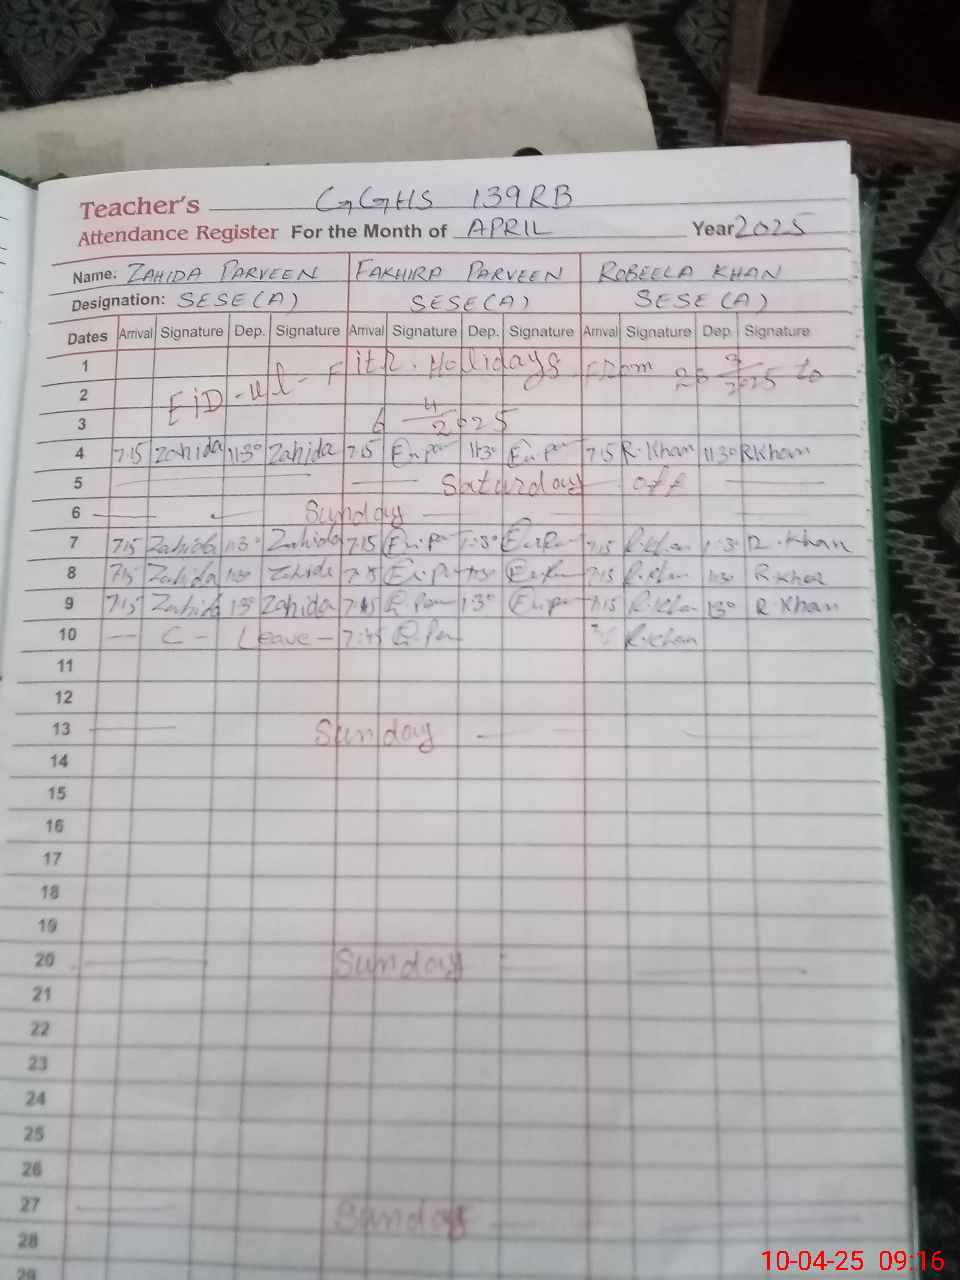 Teacher's GGHS 139RB
Attendance Register For the Month of APRIL Year 2025
Name: ZAHIDA PARVEEN FAKHIRA PARVEEN ROBEELA KHAN
Designation: SESE(A) SESE(A) SESE(A)
Dates Arrival Signature Dep. Signature Arrival Signature Dep. Signature Arrival Signature Dep. Signature
1 Fitr. Hollidays From 3/2025 to
2 EiD-ul-
3 6 4/2025
4 7:15 Zahida 11:30 Zahida 7:15 11:30 7:15 R.Khan 11:30 R.Khan
5 Saturday off
6 Sunday
7 7:15 Zahida 1:30 Zahida 7:15 1:30 7:15 R.Khan 1:30 R.Khan
8 7:15 Zahida 1:30 Zahida 7:15 1:30 7:15 R.Khan 1:30 R.Khan
9 7:15 Zahida 1:30 Zahida 7:15 1:30 7:15 R.Khan 1:30 R.Khan
10 C- Leave - R.Khan
11
12
13 Sunday
14
15
16
17
18
19
20 Sunday
21
22
23
24
25
26
27 Sunday
28
29
10-04-25 09:16